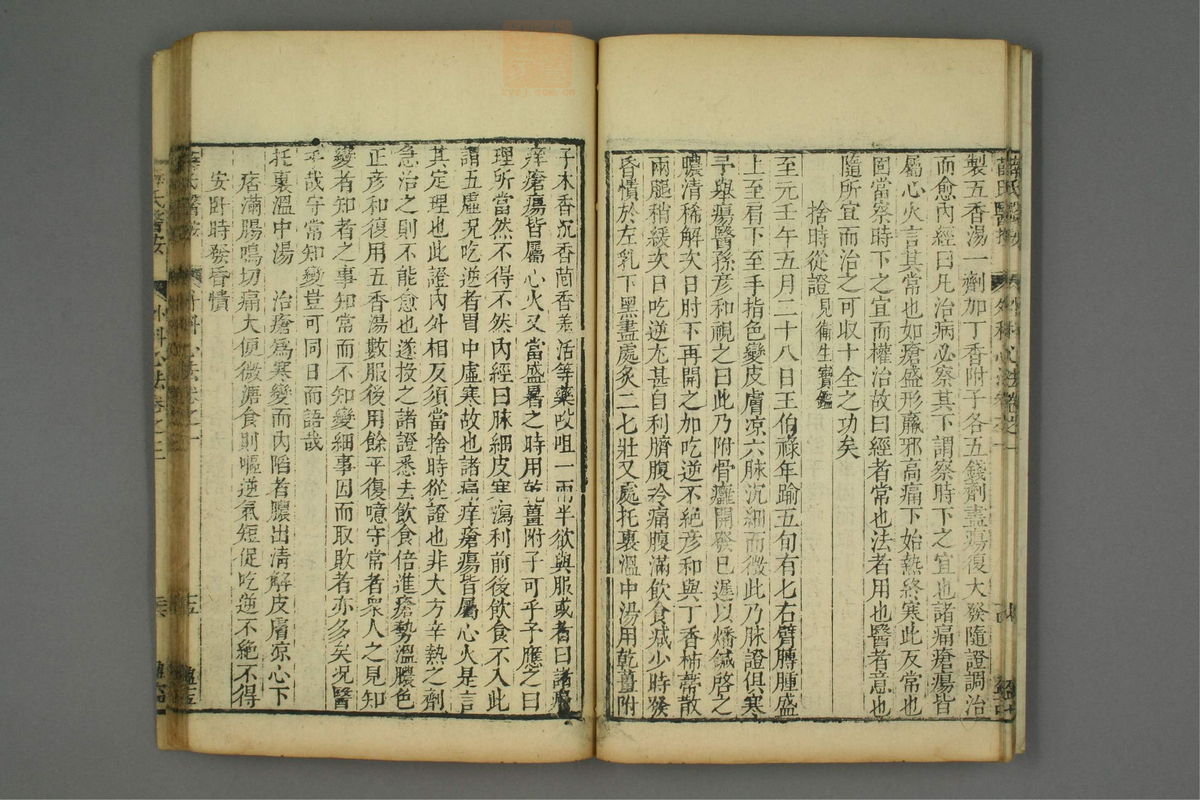 製五香湯一劑加丁香附子各五錢劑盡瘍復大發隨證調治
而愈內經曰凡治病必察其下謂察時下之宜也諸痛瘡瘍皆
屬心火言其常也如瘡盛形羸邪高痛下始熱終寒此反常也
固當察時下之宜而權治故曰經者常也法者用也醫者意也
隨所宜而治之可收十全之功矣
捨時從證見衛生寶鑑
至元壬午五月二十八日王伯祿年踰五旬有七右臂膊腫盛
上至肩下至手指色變皮膚凉六脉沉細而微此乃脉證俱寒
予舉瘍醫孫彦和視之曰此乃附骨癰開發已遲以燔鍼啓之
膿清稀解次日肘下再開之加吃逆不絕彦和與丁香柿蒂散
兩服稍緩次日吃逆尤甚自利臍腹冷痛腹滿飲食减少時發
昏憒於左乳下黑盡處灸二七壯又處托裏溫中湯用乾薑附
子木香沉香茴香羗活等藥㕮咀一兩半欲與服或者曰諸痛
痒瘡瘍皆屬心火又當盛暑之時用乾薑附子可乎予應之曰
理所當然不得不然內經曰脉細皮寒瀉利前後飲食不入此
謂五虛况吃逆者胃中虛寒故也諸痛痒瘡瘍皆屬心火是言
其定理也此證內外相反須當捨時從證也非大方辛熱之劑
急治之則不能愈也遂投之諸證悉去飲食倍進瘡勢溫膿色
正彦和復用五香湯數服後用餘平復噫守常者衆人之見知
變者知者之事知常而不知變細事因而取敗者亦多矣况醫
乎哉守常知變豈可同日而語哉
托裏溫中湯　治瘡爲寒變而內陷者膿出清解皮膚凉心下
痞滿腸鳴切痛大便微溏食則嘔逆氣短促吃逆不絕不得
安卧時發昏憒
薛氏醫按　外科心法卷之一